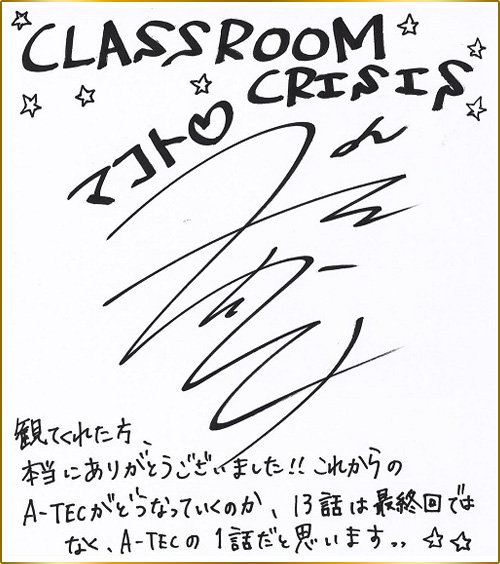 CLASSROOM
CRISIS
マコト♡
観てくれた方、
本当にありがとうございました!! これからの
A-TECがどうなっていくのか、13話は最終回では
なく、A-TECの1話だと思います。。☆☆